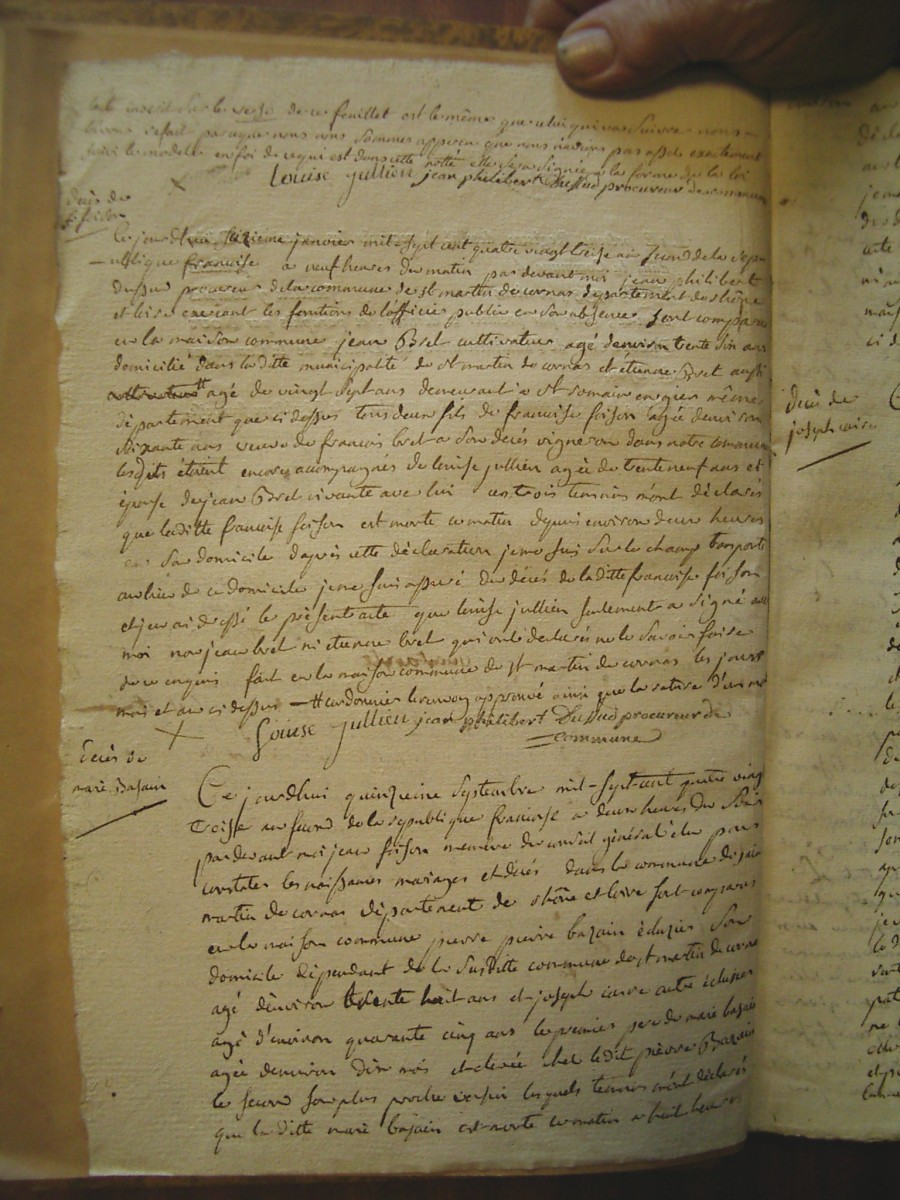 inscrit sur le verso de ce feuillet est le même que celui qui va suivre nous
refait parceque nous nous sommes apperçu que nous n'avions pas assés exactement
suivi le modelle en foi de ce qui est dans cette notte elle sera signée a la forme de la loi
Louise jullien jean philibert Dussud procureur de commune
Décès de
f foison
Ce jourdhui seizieme janvier mil sept cent quatre vingt treise an second de la repu
-ublique francoise a neuf heures du matin par devant moi jean philibert
dussud procureur de la commune de st martin de cornas departement de rhône
et loire exercant les fonctions de lofficier public en son absence sont comparus
en la maison commune jean Bret cultivateur agé denviron trente six ans
domicilié dans laditte municipalité de st martin de cornas et étienne Bret aussi
agé de vingt sept ans demeurant a st romain en gier même
département que ci dessus tous deux fils de francoise foison agée denviron
soixante ans veuve de francois bret a son decés vigneron dans notre commune
lesdits étaient encore accompagnés de louise jullien agée de trente neuf ans et
épouse de jean Bret vivante avec lui ces trois temoins m'ont déclarés
que laditte francoise foison est morte ce matin depuis environ deux heures
en son domicile daprès cette déclaration je me suis sur le champ transporté
au lieu de ce domicile je me suis assuré du décés de laditte francoise foison
et jen ai dressé le présent acte que louise jullien seulement a signé avec
moi non jean bret ni etienne bret qui ont declarés ne le savoir faire
de ce enquis fait en la maison commune de st martin de cornas les jours
mois et an ci dessus # cordonnier le renvoy approuvé ainsi que la rature d'un mot
Louise jullien jean philibert Dussud procureur de
commune
Décès de
marie Bajain
Ce jourdhui quinzieme septembre mil sept cent quatre vingt
treise an second de la republique francoise a deux heures du soir
par devant moi jean foison membre du conseil général élu pour
constater les naissances mariages et décés dans la commune de saint
martin de cornas département de rhône et loire sont comparus
en la maison commune pierre pierre bajain éclusier son
domicile dépendant de la susditte commune de st martin de cornas
agé d'environ trente huit ans et joseph caire autre éclusier
agé d'environ quarante cinq ans le premier pere de marie bajain
agée denviron dix mois et elevée chez ledit pierre Bajain
le second son plus proche voisin lesquels temoins m'ont déclarés
que laditte marie bajain est morte ce matin a huit heures
Décès de
joseph caire